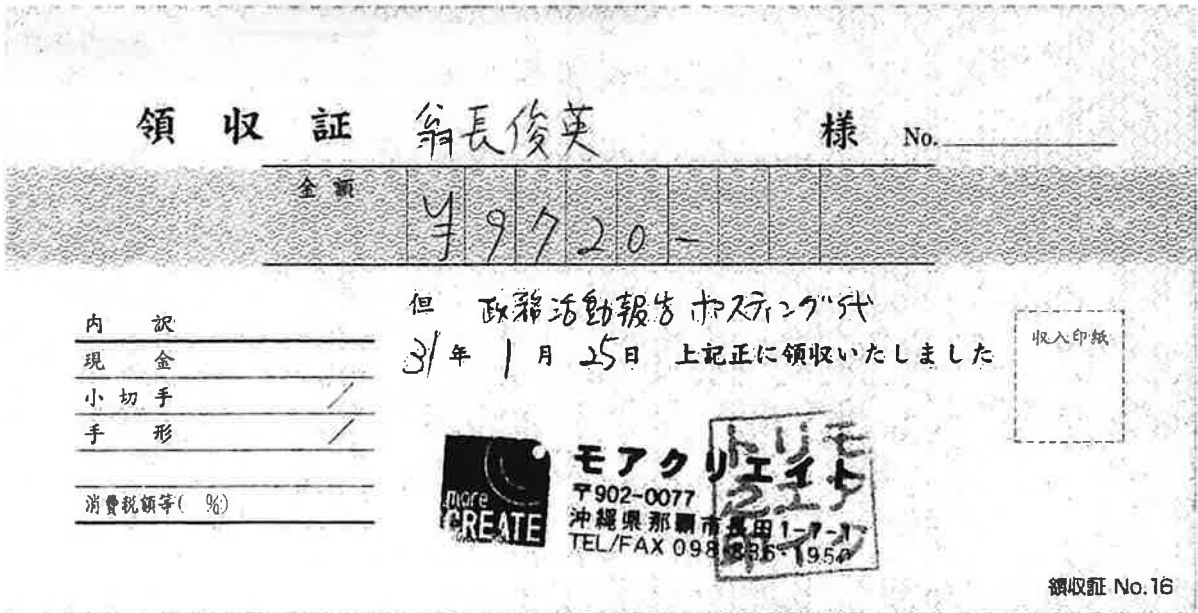 領収証 翁長俊英 様 No.
金額 ¥9720-
但 政務活動報告 ポスティング代
31年1月25日 上記正に領収いたしました
収入印紙
内訳
現金
小切手 /
手形 /
消費税額等( %)
more CREATE
モアクリエイト
〒902-0077
沖縄県那覇市長田1-7-1
TEL/FAX 098-836-1950
領収証 No.16